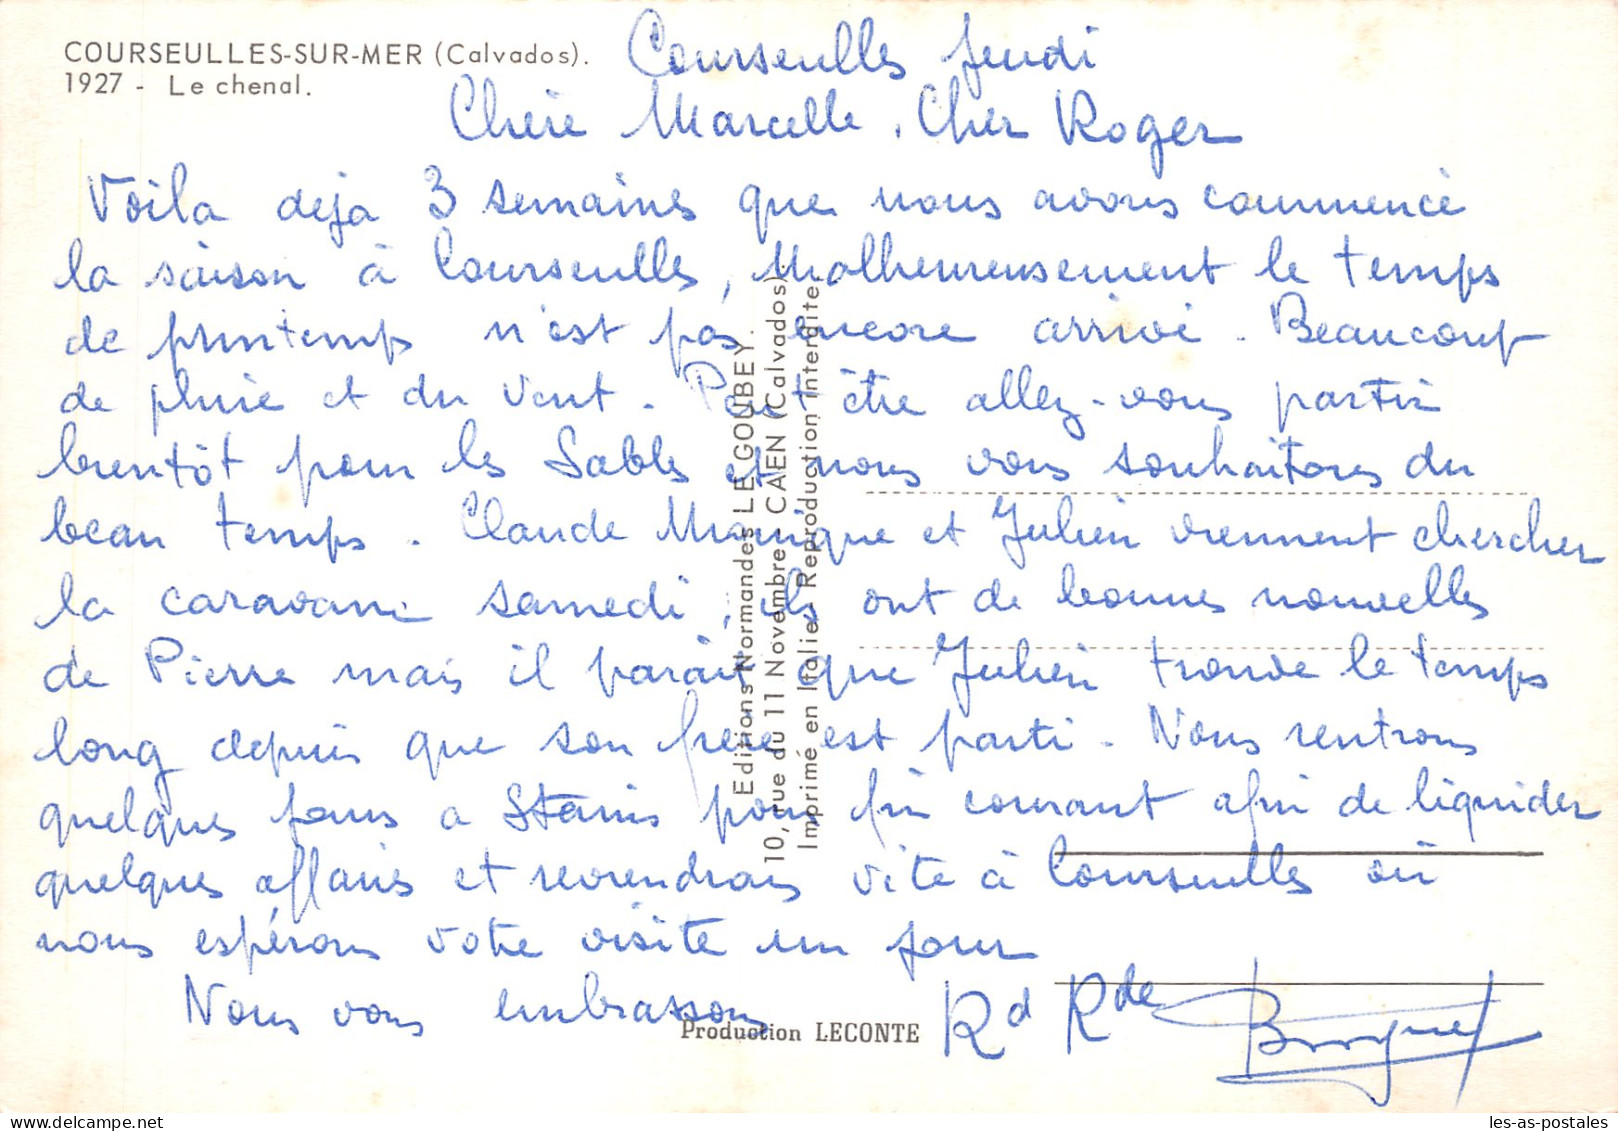 COURSEULLES-SUR-MER (Calvados).
1927 - Le chenal.
Courseulles Jeudi
Chère Marcelle, Cher Roger
Voila deja 3 semaines que nous avons commencé
la saison à Courseulles, Malheureusement le temps
de printemps n'est pas encore arrivé. Beaucoup
de pluie et du vent. Peut être allez-vous partir
bientôt pour les Sables et nous vous souhaitons du
beau temps. Claude Monique et Julien viennent chercher
la caravane samedi, ils ont de bonnes nouvelles
de Pierre mais il parait que Julien trouve le temps
long depuis que son frère est parti. Nous rentrons
quelques jours a Stains pour fin courant afin de liquider
quelques affaires et reviendrons vite à Courseulles où
nous espérons votre visite un jour
Nous vous embrassons
Rd Rde
Editions Normandes LE GOUBEY.
10, rue du 11 Novembre - CAEN (Calvados)
Imprimé en Italie. Reproduction Interdite.
Production LECONTE
les-as-postales